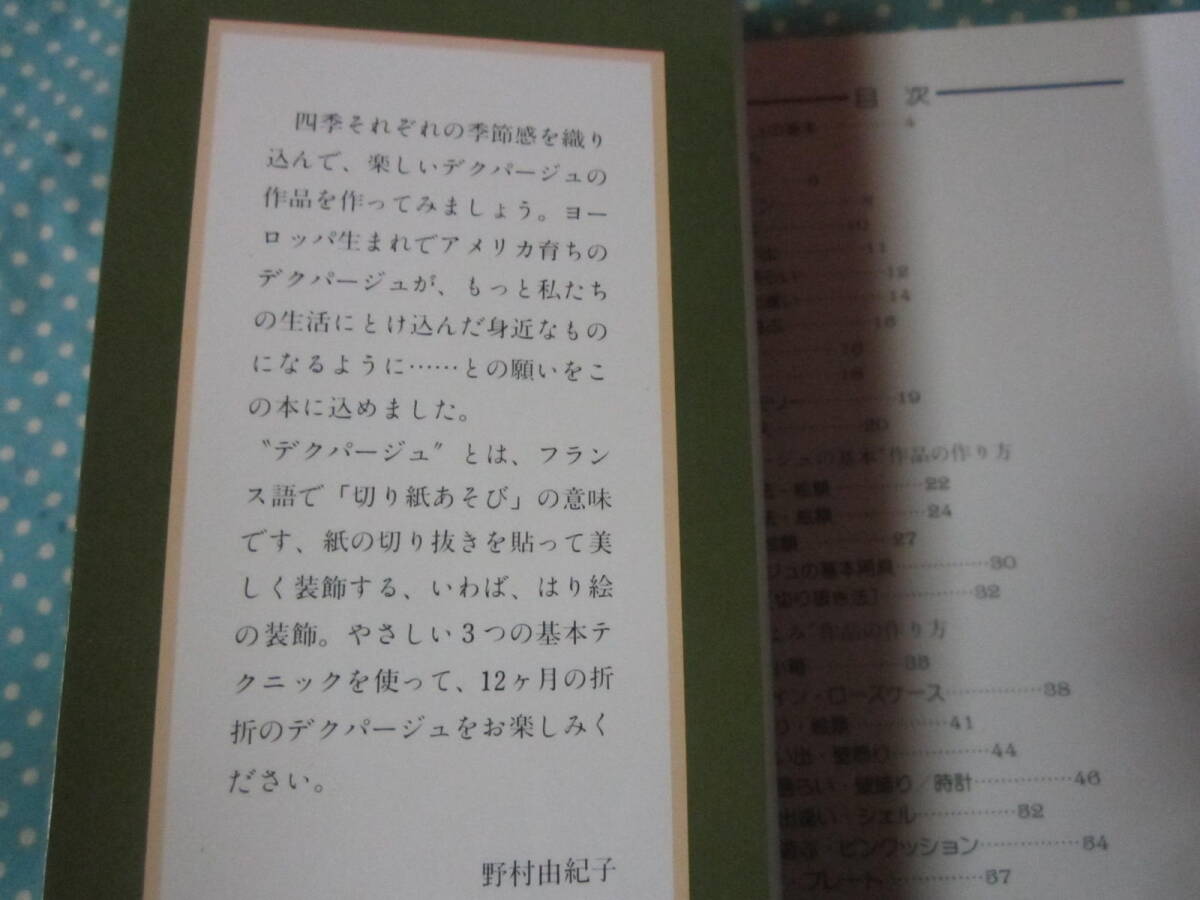 四季それぞれの季節感を織り
込んで、楽しいデクパージュの
作品を作ってみましょう。ヨー
ロッパ生まれでアメリカ育ちの
デクパージュが、もっと私たち
の生活にとけ込んだ身近なもの
になるように……との願いをこ
の本に込めました。
〝デクパージュ〟とは、フラン
ス語で「切り紙あそび」の意味
です、紙の切り抜きを貼って美
しく装飾する、いわば、はり絵
の装飾。やさしい3つの基本テ
クニックを使って、12ヶ月の折
折のデクパージュをお楽しみく
ださい。
野村由紀子
目次
の基本………4
………6
………10
………11
………12
………14
………19
………20
ージュの基本"作品の作り方
・絵額………22
・絵額………24
………27
ジュの基本用具………30
[切り抜き法]………32
"作品の作り方
小箱………35
イン・ローズケース………38
り・絵額………41
い出・壁飾り………44
らい・壁飾り／時計………46
出逢い・シェル………52
ぶ・ピンクッション………54
・プレート………57